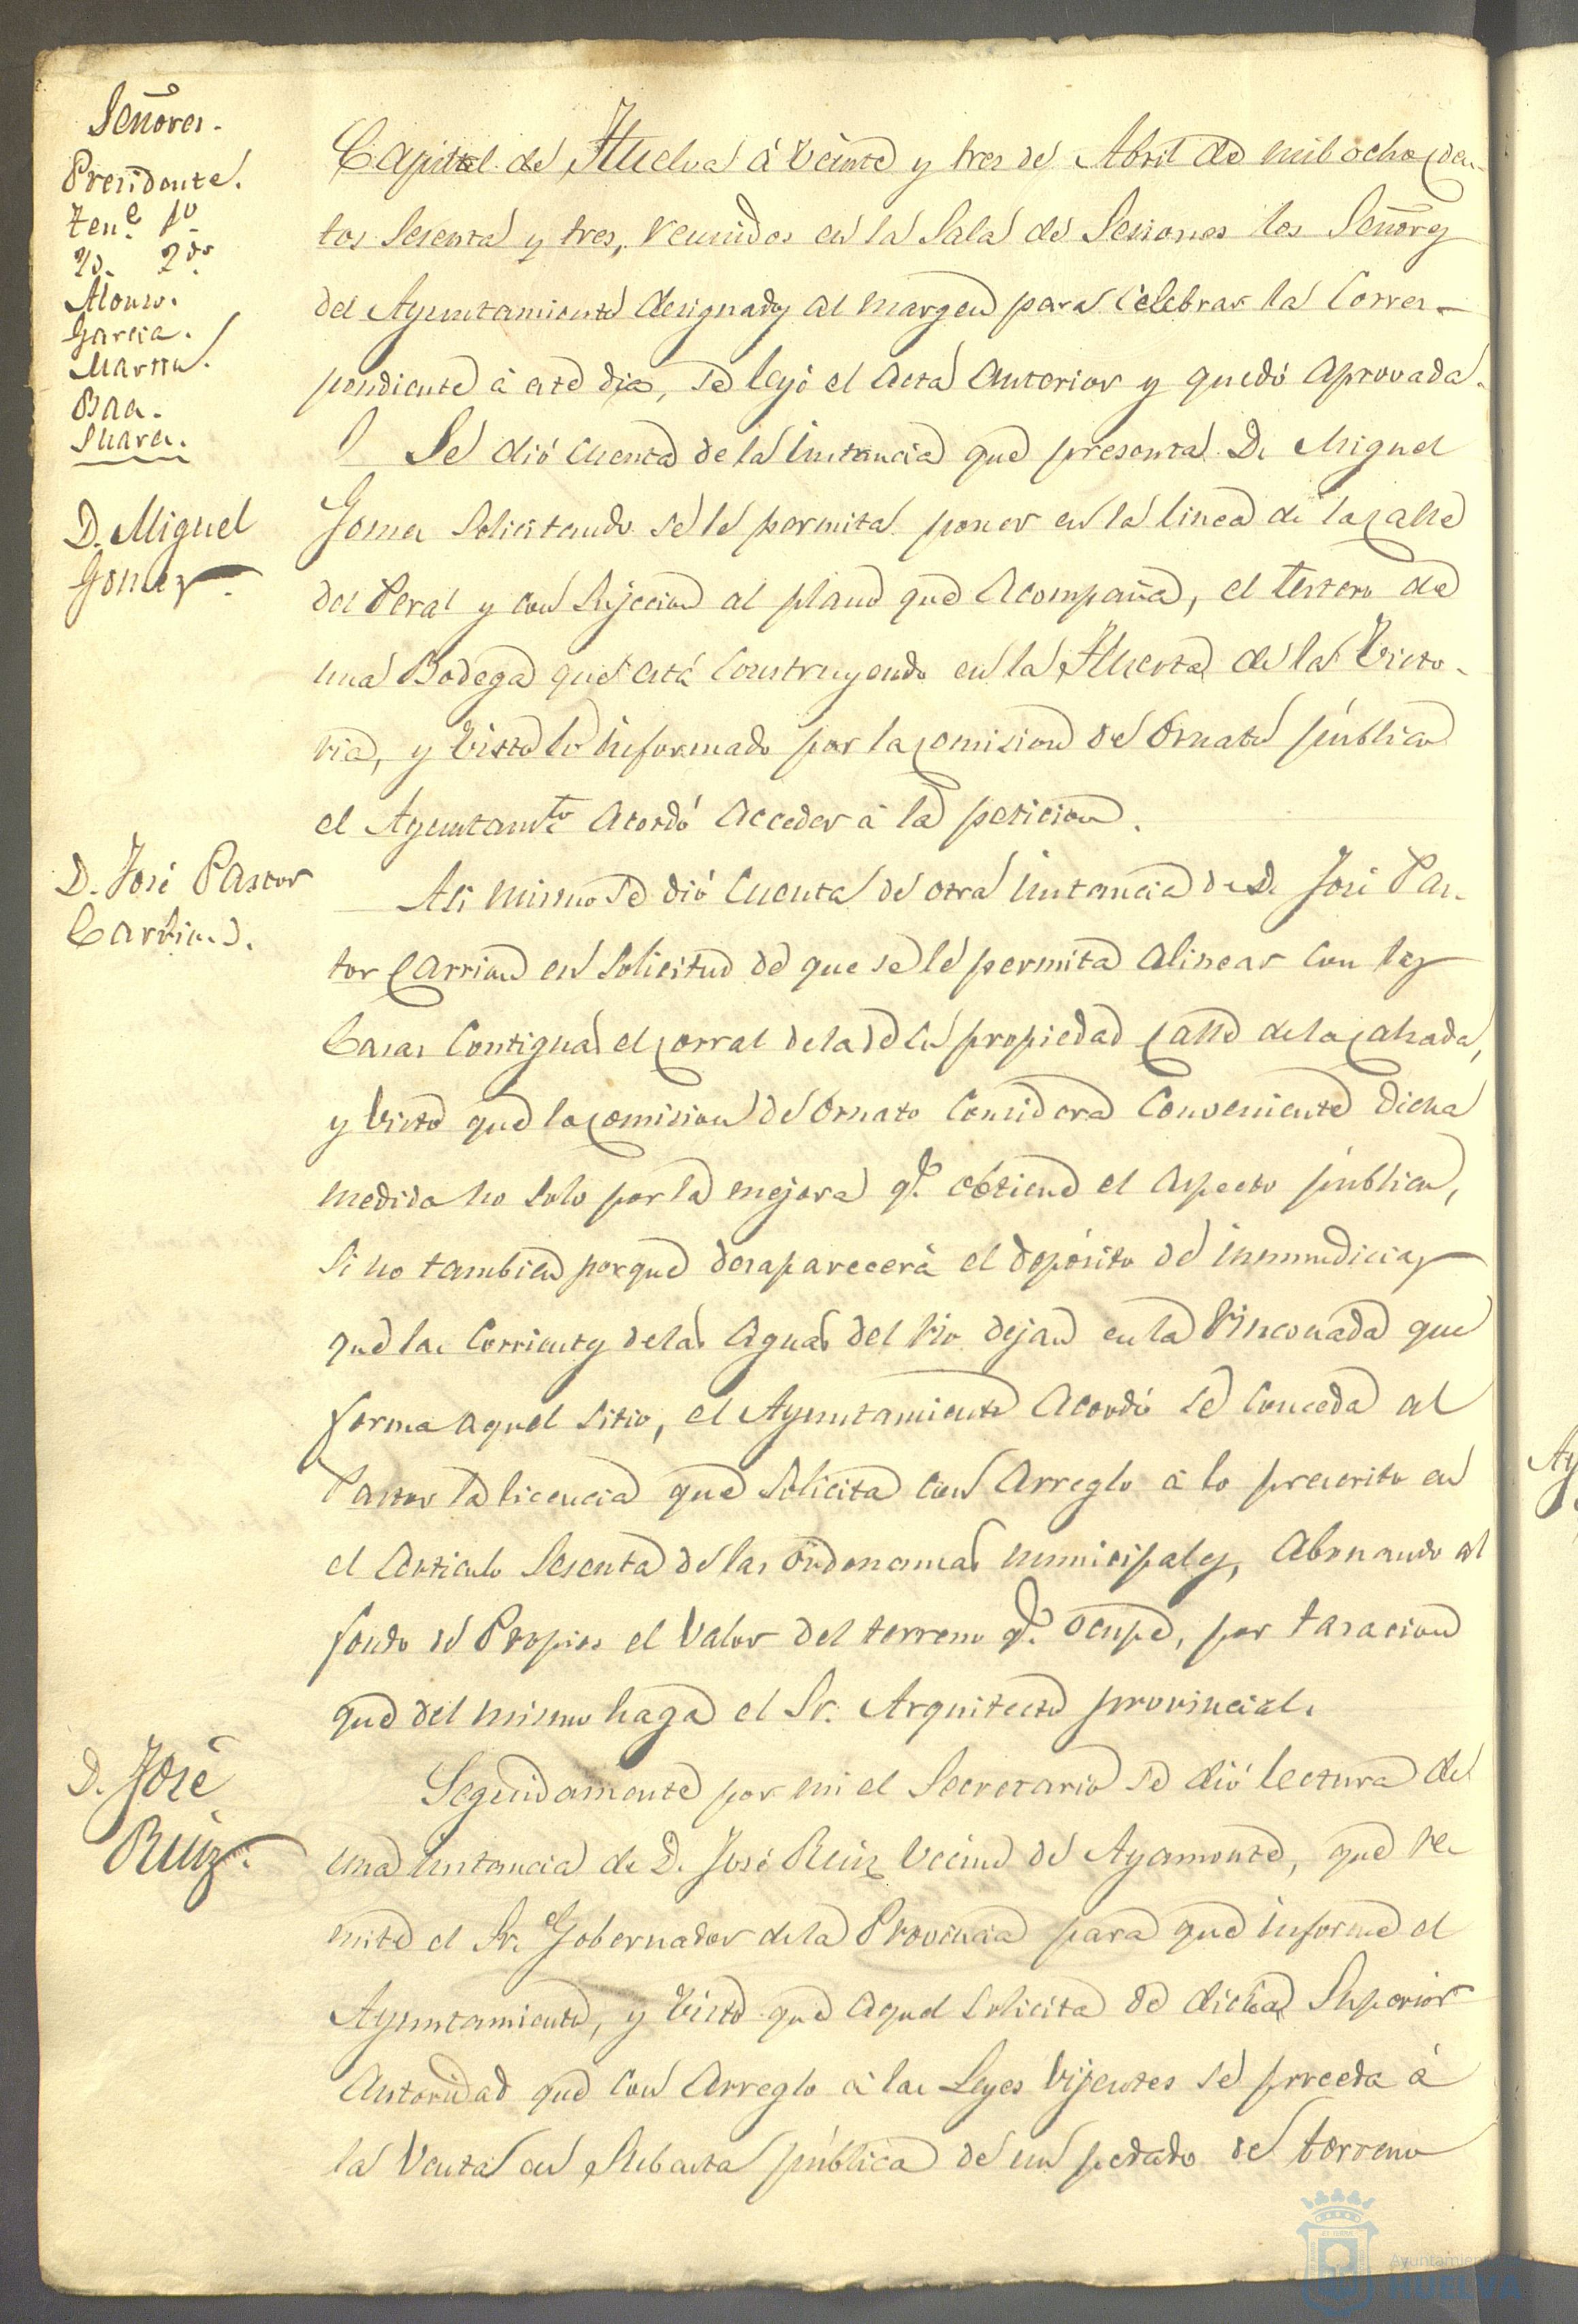 Señores.
Presidente.
Tene. 1º
Yd. 2do
Alonso.
Garcia.
Martin.
Baa.
Suarez.
Capital de Huelva á veinte y tres de Abril de mil ochocien-
tos sesenta y tres, reunidos en la Sala de Sesiones los Señores
del Ayuntamiento designados al margen para celebrar la corres-
pondiente á este dia, se leyó el acta anterior y quedó aprovada.
D. Miguel
Gomez.
Se dió cuenta de la instancia que presenta D. Miguel
Gomez solicitando se le permita poner en la linea de la calle
del Peral y con sujecion al plano que acompaña, el testero de
una Bodega que está construyendo en la Huerta de la Victo-
ria, y visto lo informado por la comision de Ornato público
el Ayuntamto. acordó acceder á la peticion.
D. José Pastor
Carrion.
Asi mismo se dió cuenta de otra instancia de D. José Pas-
tor Carrion en solicitud de que se le permita alinear con las
casas contiguas el corral de la de su propiedad calle de la calzada,
y visto que la comision de Ornato considera conveniente dicha
medida no solo por la mejora qe. obtiene el aspecto público,
sino tambien porque desaparecerá el depósito de inmundicias
que las corrientes de las aguas del rio dejan en la rinconada que
forma aquel sitio, el Ayuntamiento acordó se conceda al
Pastor la licencia que solicita con arreglo á lo prescrito en
el articulo sesenta de las ordenanzas municipales, abonando al
fondo de Propios el valor del terreno qe. ocupe, por tasacion
que del mismo haga el Sr. Arquitecto provincial.
D. José
Ruiz.
Seguidamente por mi el Secretario se dió lectura de
una instancia de D. José Ruiz vecino de Ayamonte, que re-
mite el Sr. Gobernador de la Provincia para que informe el
Ayuntamiento, y visto que aquel solicita de dicha Superior
Autoridad que con arreglo á las Leyes vijentes se proceda á
la venta en subasta pública de un pedazo de terreno
Ayuntamie
HUELVA